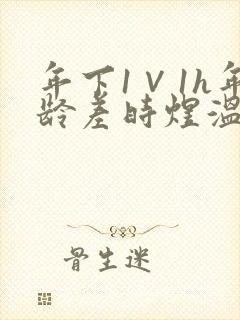 年下1V1h年
龄差时煜温
骨生迷